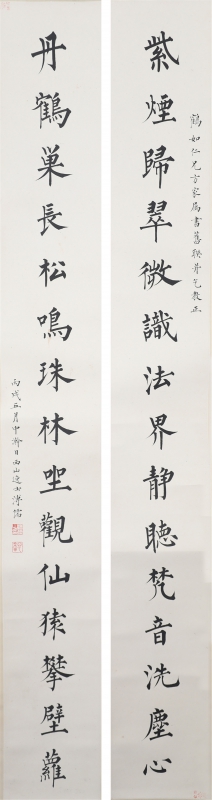 鶴如仁兄方家屬書舊聯并乞教正
紫煙歸翠微識法界靜聽梵音洗塵心
丹鶴巢長松鳴珠林坐觀仙猿攀壁蘿
丙戌五月中澣日西山逸士溥儒